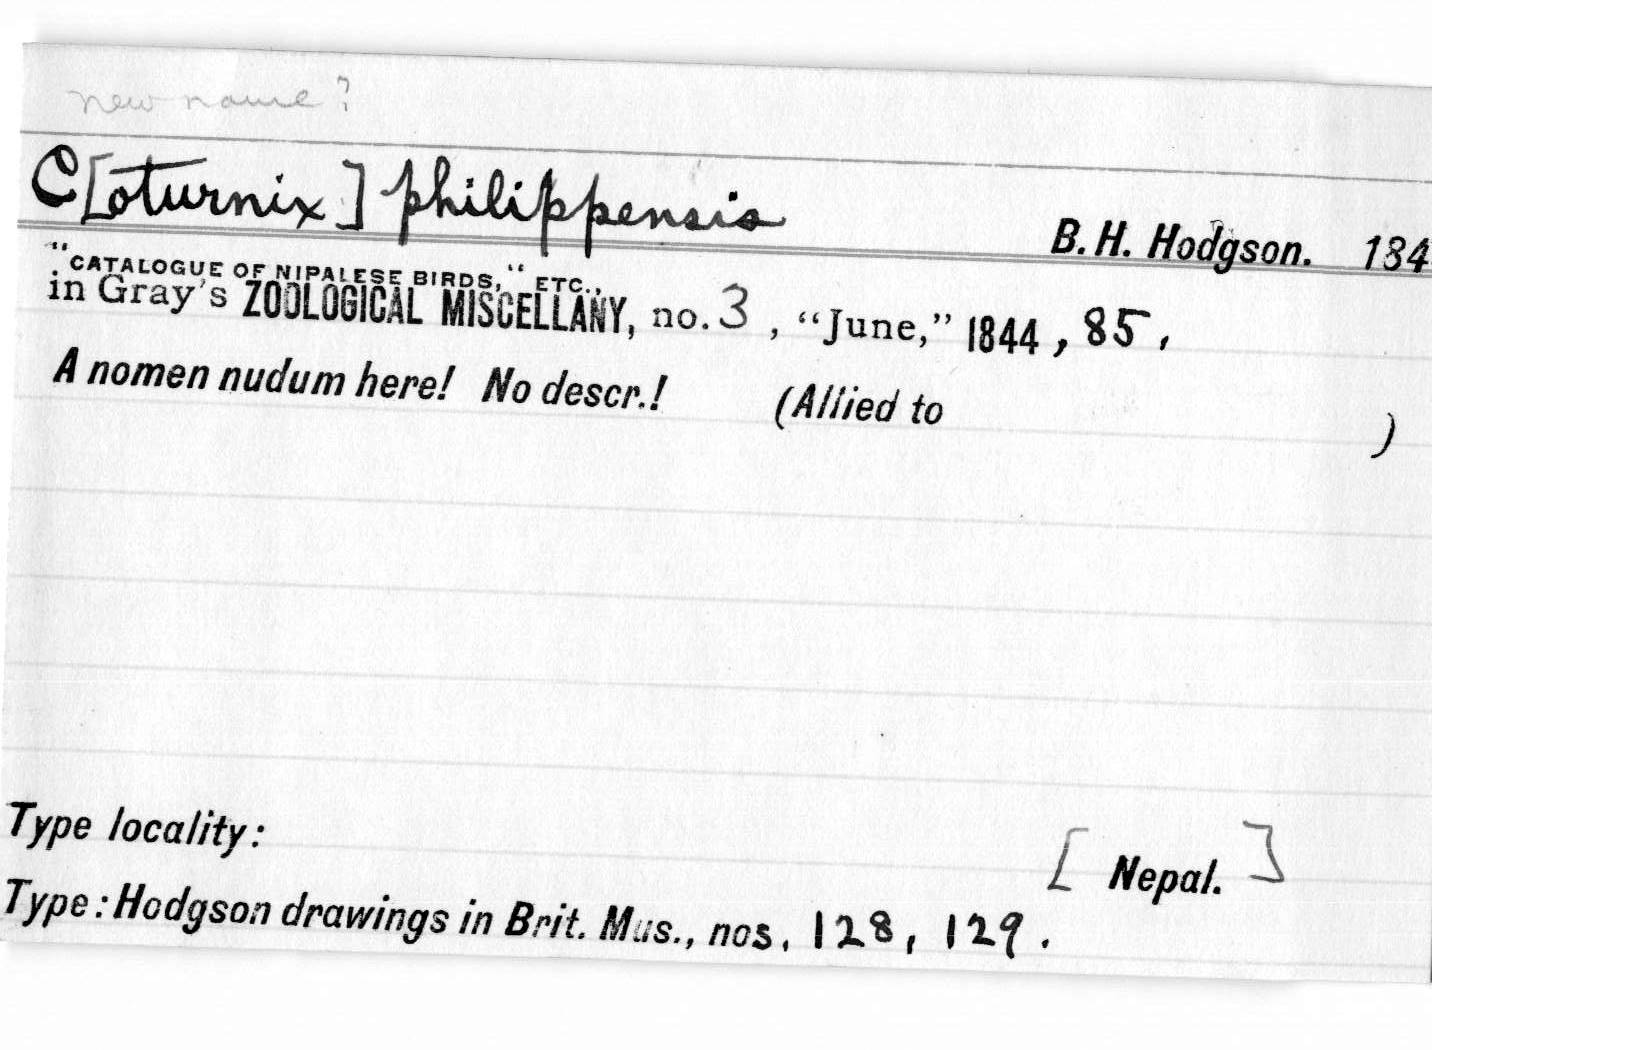 new name?
C[oturnix] philippensis B. H. Hodgson. 184
"CATALOGUE OF NIPALESE BIRDS," ETC.,
in Gray's ZOOLOGICAL MISCELLANY, no. 3, "June," 1844, 85.
A nomen nudum here! No descr.! (Allied to )
Type locality: [Nepal.]
Type: Hodgson drawings in Brit. Mus., nos. 128, 129.